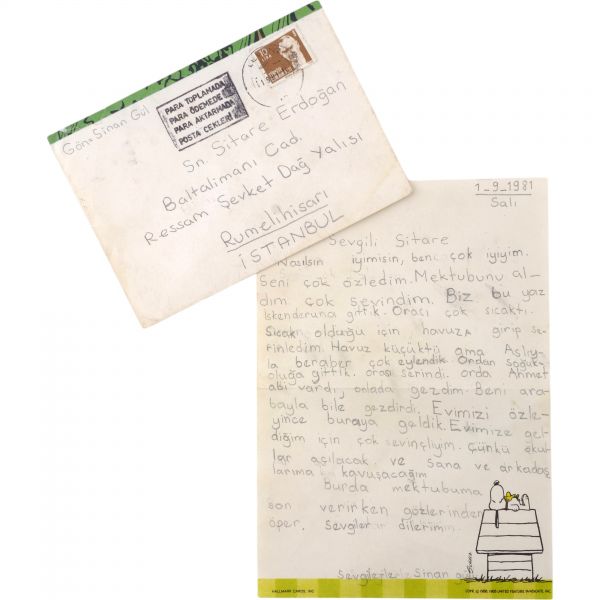 10
LİRA
PARA TOPLAMADA
PARA ÖDEMEDE
PARA AKTARMADA
POSTA ÇEKLERİ
Gön: Sinan Gül
Sn. Sitare Erdoğan
Baltalimanı Cad.
Ressam Şevket Dağ Yalısı
Rumelihisarı
İSTANBUL
1_9_1981
Salı
Sevgili Sitare
Nasılsın iyimisin, beni çok iyiyim.
Seni çok özledim. Mektubunu al-
dım çok sevindim. Biz bu yaz
İskenderuna gittik. Oracı çok sıcaktı.
Sıcak olduğu için havuza girip se-
rinledim. Havuz küçüktü ama Aslıy-
la beraber çok eylendik. Ordan soğuk-
oluğa gittik. orası serindi. orda Ahmet
abi vardı, onlada gezdim. Beni ara-
bayla bile gezdirdi. Evimizi özle-
yince buraya geldik. Evimize gel-
diğim için çok sevinçliyim. Çünkü okul-
lar açılacak. ve sana ve arkadaş
larıma kavuşacağım
Burda mektubuma
son verirken gözlerinden
öper, sevgiler dilerim.
Sevgilerle Sinan
HALLMARK CARDS, INC.
UNITED FEATURE SYNDICATE, INC.